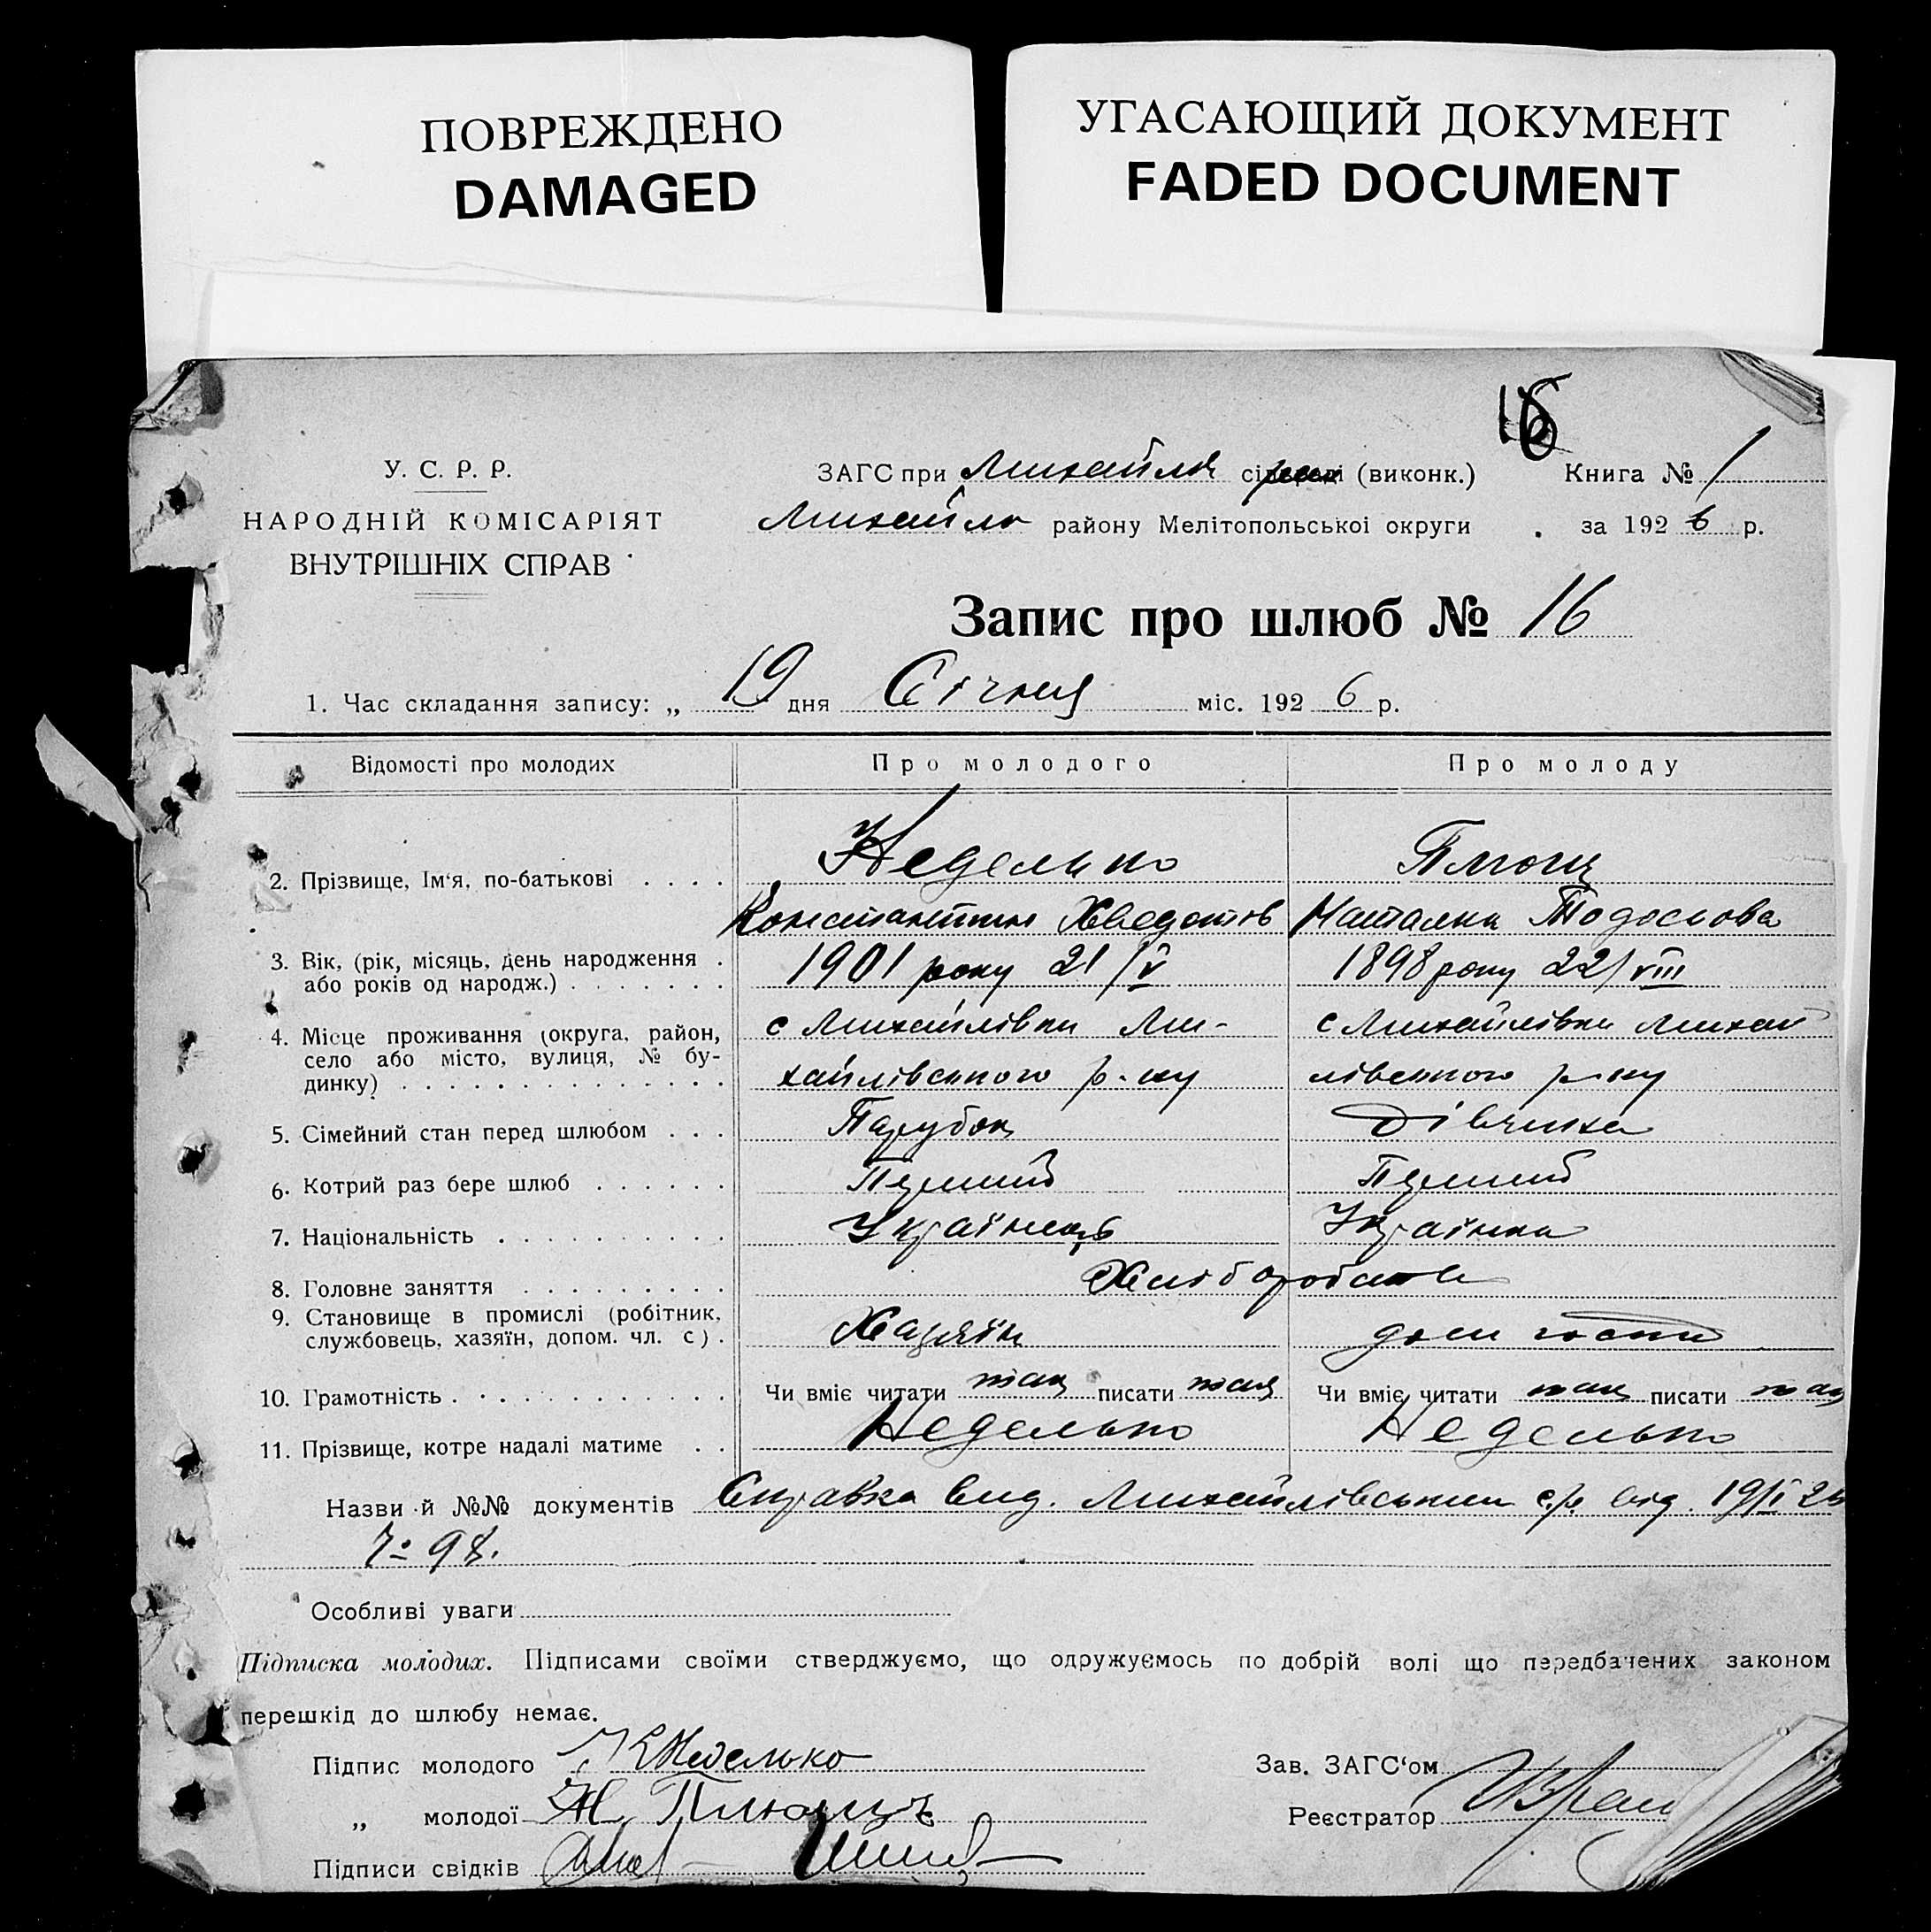 ПОВРЕЖДЕНО
DAMAGED
УГАСАЮЩИЙ ДОКУМЕНТ
FADED DOCUMENT
16
У. С. Р. Р.
НАРОДНІЙ КОМІСАРІЯТ
ВНУТРІШНІХ СПРАВ
ЗАГС при Михайлів (виконк.) Книга № 1
Михайлів району Мелітопольської округи за 1926 р.
Запис про шлюб № 16
1. Час складання запису: „ 19 дня Січня міс. 1926 р.
Відомості про молодих Про молодого Про молоду
2. Прізвище, Ім'я, по-батькові . . . . Неделько Плющ
Константин Хведотів Наталка Тодосьова
3. Вік, (рік, місяць, день народження . 1901 року 21/V 1898 року 22/VIII
або років од народж.) . . . . . . .
4. Місце проживання (округа, район, с Михайлівки Ми- с Михайлівки Михай
село або місто, вулиця, № бу- хайлівського р-ну лівського р-ну
динку) . . . . . . . . . . . . . .
5. Сімейний стан перед шлюбом . . . Парубок Дівчина
6. Котрий раз бере шлюб . . . . . . Перший Перший
7. Національність . . . . . . . . . . Українець Українка
8. Головне заняття . . . . . . . . . Хліборобство
9. Становище в промислі (робітник,
службовець, хазяїн, допом. чл. с) . Хазяїн
10. Грамотність . . . . . . . . . . . Чи вміє читати так писати так Чи вміє читати так писати так
11. Прізвище, котре надалі матиме . . Неделько Неделько
Назви й №№ документів Справка вид. Михайлівським с/р від. 19/I 26
98.
Особливі уваги
Підписка молодих. Підписами своїми стверджуємо, що одружуємось по добрій волі що передбачених законом
перешкід до шлюбу немає.
Підпис молодого КНеделько Зав. ЗАГС'ом
„ молодої Н. Плющъ Реєстратор
Підписи свідків